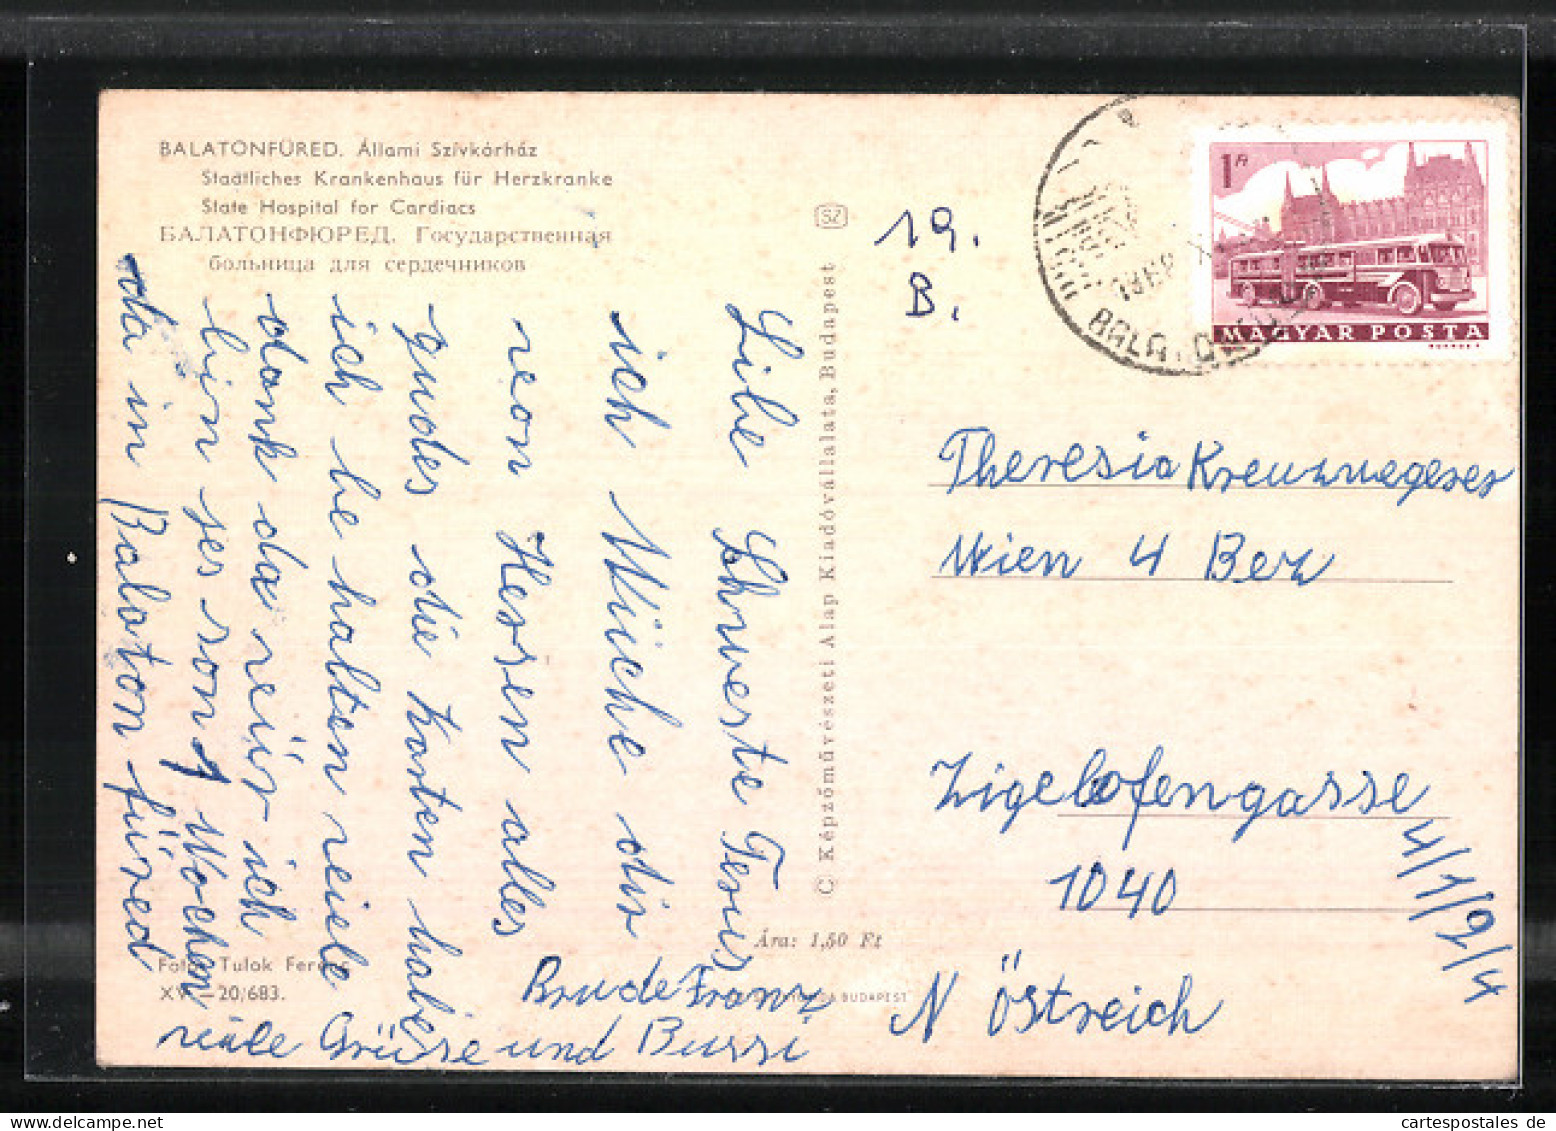 BALATONFÜRED. Állami Szívkórház
Staatliches Krankenhaus für Herzkranke
State Hospital for Cardiacs
БАЛАТОНФЮРЕД. Государственная
больница для сердечников
Libe Schweste Terus
ich Wüche dir
von Hersen alles
gudes die Karten habe
ich be halten viele
dank da vür ich
bin ses son 1 Wochen
da in Balaton füred
viele Grüsse und Bussi
Brude Franz
Foto: Tulok Ferenc
20/683.
SZ
C Képzőművészeti Alap Kiadóvállalata, Budapest
Ára: 1,50 Ft
BUDAPEST
19.
B.
1 Ft
MAGYAR POSTA
Theresia Kreuzwegerer
Wien 4 Bez
Zigelofengasse
4/1/9/4
1040
N Östreich
cartespostales de